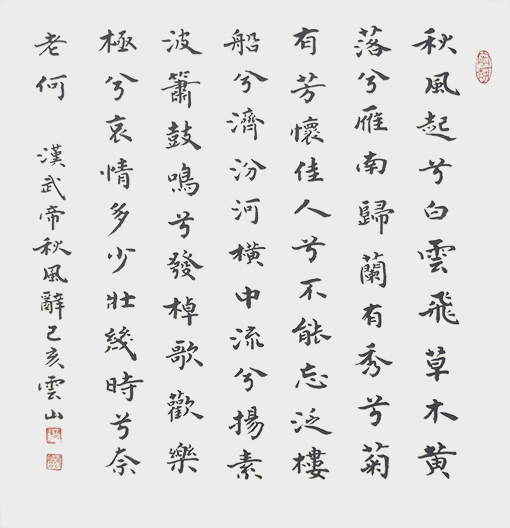 秋風起兮白雲飛草木黄
落兮雁南歸蘭有秀兮菊
有芳懷佳人兮不能忘泛樓
船兮濟汾河横中流兮揚素
波簫鼓鳴兮發棹歌歡樂
極兮哀情多少壯幾時兮奈
老何
漢武帝秋風辭己亥雲山